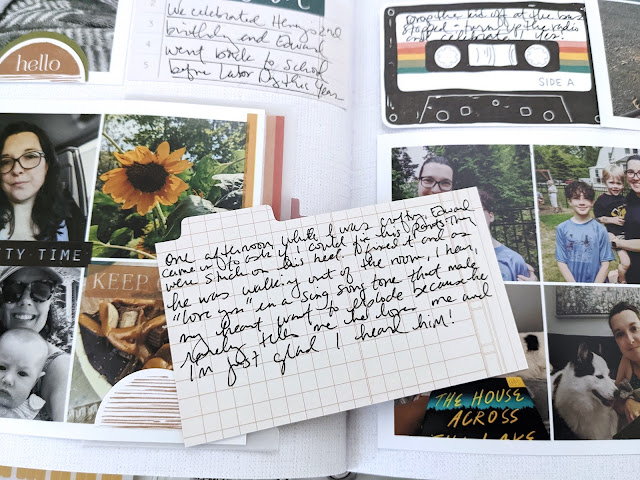 We celebrated Henry's 2nd
birthday and Edward
went back to school
before Labor Day this year
2
3
4
5
hello
Drop the kid off at the bus
stop and turn up the radio
and celebrate! Yes!
SIDE A
TY TIME
KEEP
One afternoon while I was crafting, Edward
came in to ask if I could fix his pants. They
were stuck on his heel. I fixed it and as
he was walking out of the room, I hear,
"Love you" in a sing song tone that made
my heart want to explode because he
rarely tells me he loves me and
I'm just glad I heard him!
THE HOUSE
ACROSS
THE LAKE